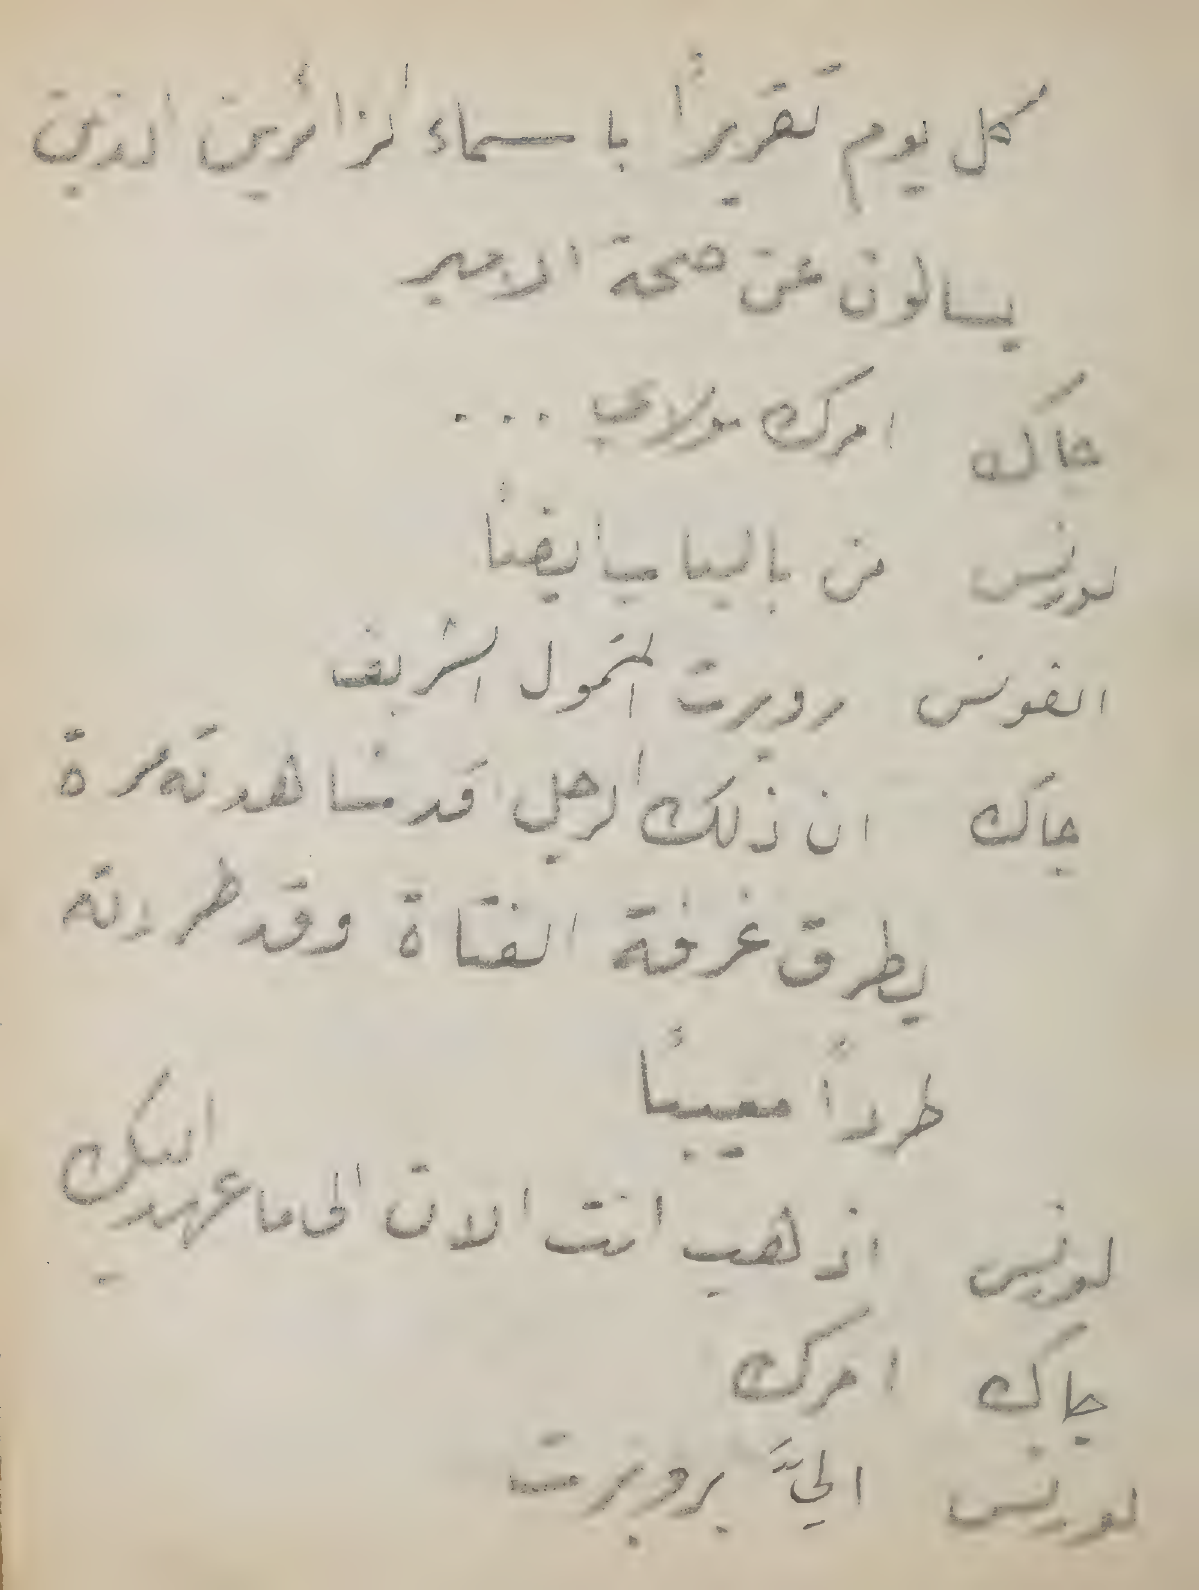 كل يوم تقريراً باسماء الزائرين الذين
يسالون عن صحة الامير
جاك امرك مولاي ...
لورنس من بالباب ايضاً
الفونس روبرت المتمول الشريف
جاك ان ذلك الرجل قد شاهدته مرة
يطرق غرفة الفتاة وقد طردته
طرداً معيباً
لورنس اذهب انت الان الى ما عهد اليك
جاك امرك
لورنس اليَّ بروبرت